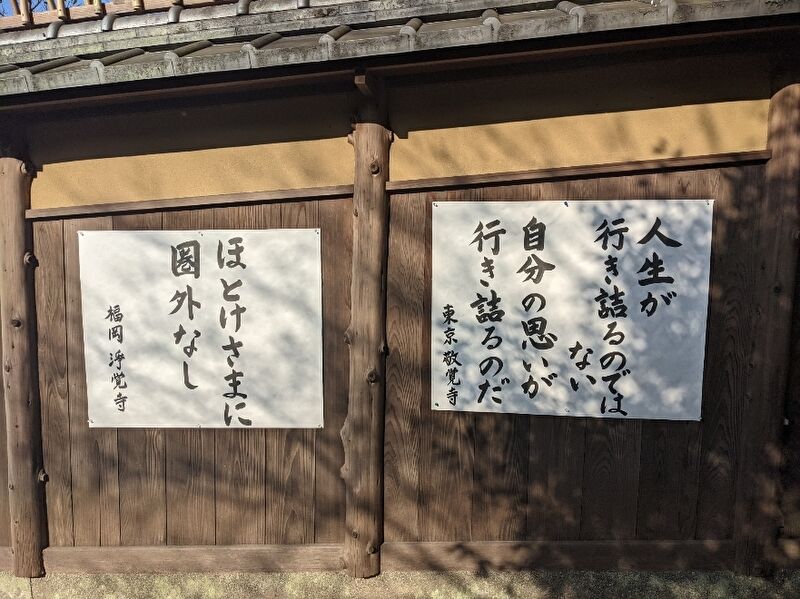 人生が
行き詰るのでは
ない
自分の思いが
行き詰るのだ
東京 敬覚寺
ほとけさまに
圏外なし
福岡 浄覚寺